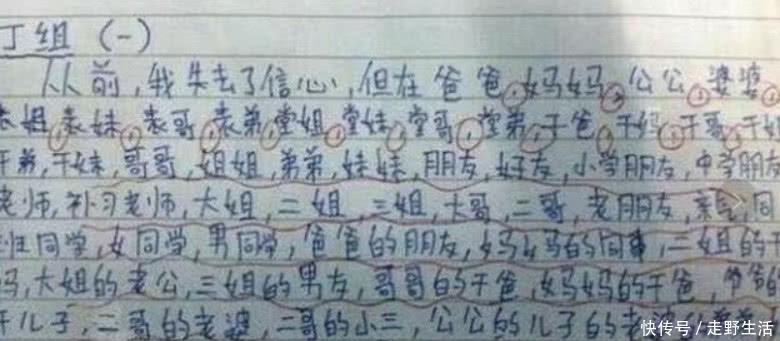 丁组 (一)
从前,我失去了信心,但在爸爸,妈妈,公公,婆婆,
表姐,表妹,表哥,表弟,堂姐,堂妹,堂哥,堂弟,干爸,干妈,干哥,干
干弟,干妹,哥哥,姐姐,弟弟,妹妹,朋友,好友,小学朋友,中学朋友
老师,补习老师,大姐,二姐,三姐,大哥,二哥,老朋友,同
班同学,女同学,男同学,爸爸的朋友,妈妈的同事,二姐的
妈,大姐的老公,三姐的男友,哥哥的干爸,妈妈的干爸,爷爷的
干儿子,二哥的老婆,二哥的小三,公公的儿子的
快传号/走野生活